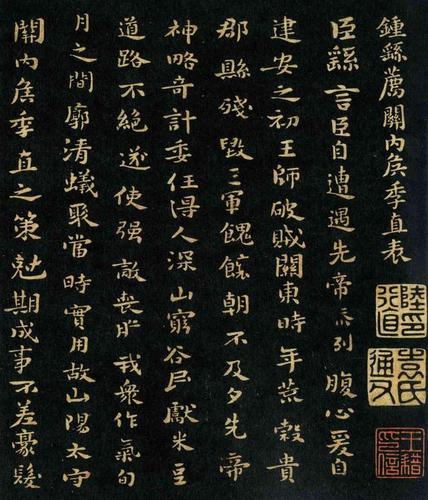 鍾繇薦關內侯季直表
臣繇言臣自遭遇先帝忝列腹心爰自
建安之初王師破賊關東時年荒穀貴
郡縣殘毀三軍餽饟朝不及夕先帝
神略奇計委任得人深山窮谷民獻米豆
道路不絕遂使强敵喪膽我衆作氣旬
月之間廓清蟻聚當時實用故山陽太守
關內侯季直之策尅期成事不差豪髮
陸印行直